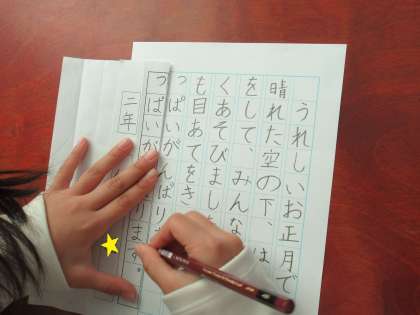 うれしいお正月で
晴れた空の下、は
をして、みんな
くあそびまし
も目あてをき
っぱいがんばり
っぱいが ります。
二年